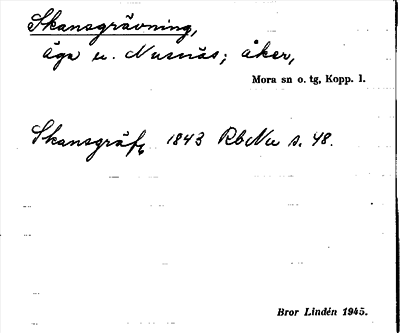 Skansgrävning,
äga u. Nusnäs; åker,
Mora sn o. tg, Kopp. l.
Skansgräf, 1843 RbNu s. 48.
Bror Lindén 1945.